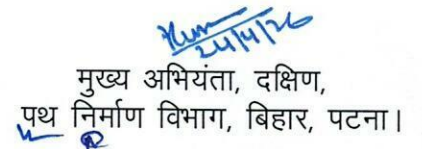 24/4/26
मुख्य अभियंता, दक्षिण,
पथ निर्माण विभाग, बिहार, पटना।